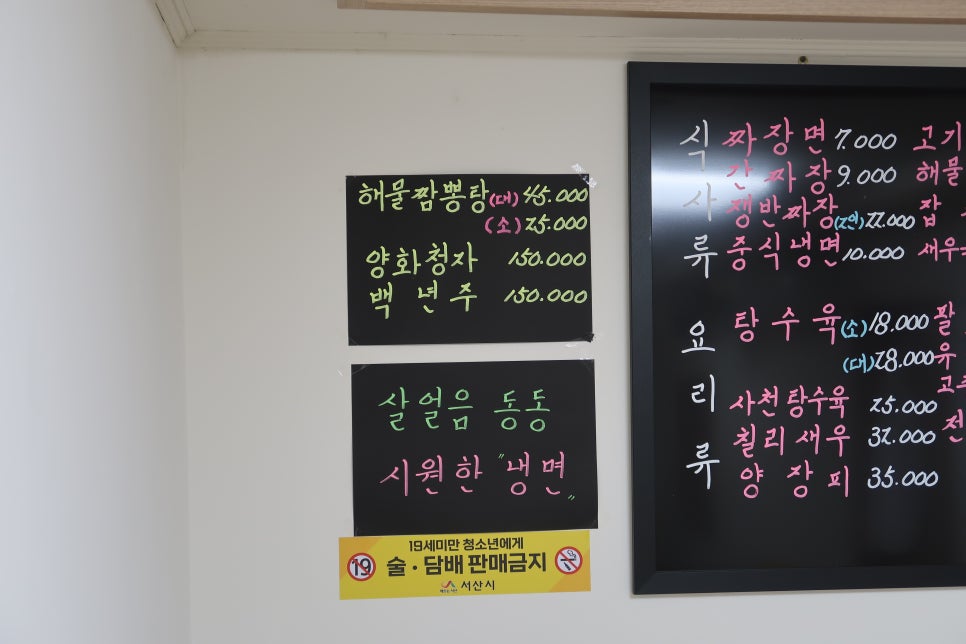 해물짬뽕탕(대) 45.000
(소) 25.000
양화청자 150.000
백년주 150.000
살얼음 동동
시원한 "냉면"
19세미만 청소년에게
19 술·담배 판매금지
서산시
식사류
짜장면 7.000 고기
간짜장 9.000 해물
쟁반짜장(2인) 22.000 잡
중식냉면 10.000 새우
요리류
탕수육(소) 18.000 팔
(대) 28.000 유
사천탕수육 25.000
칠리새우 32.000 전
양장피 35.000